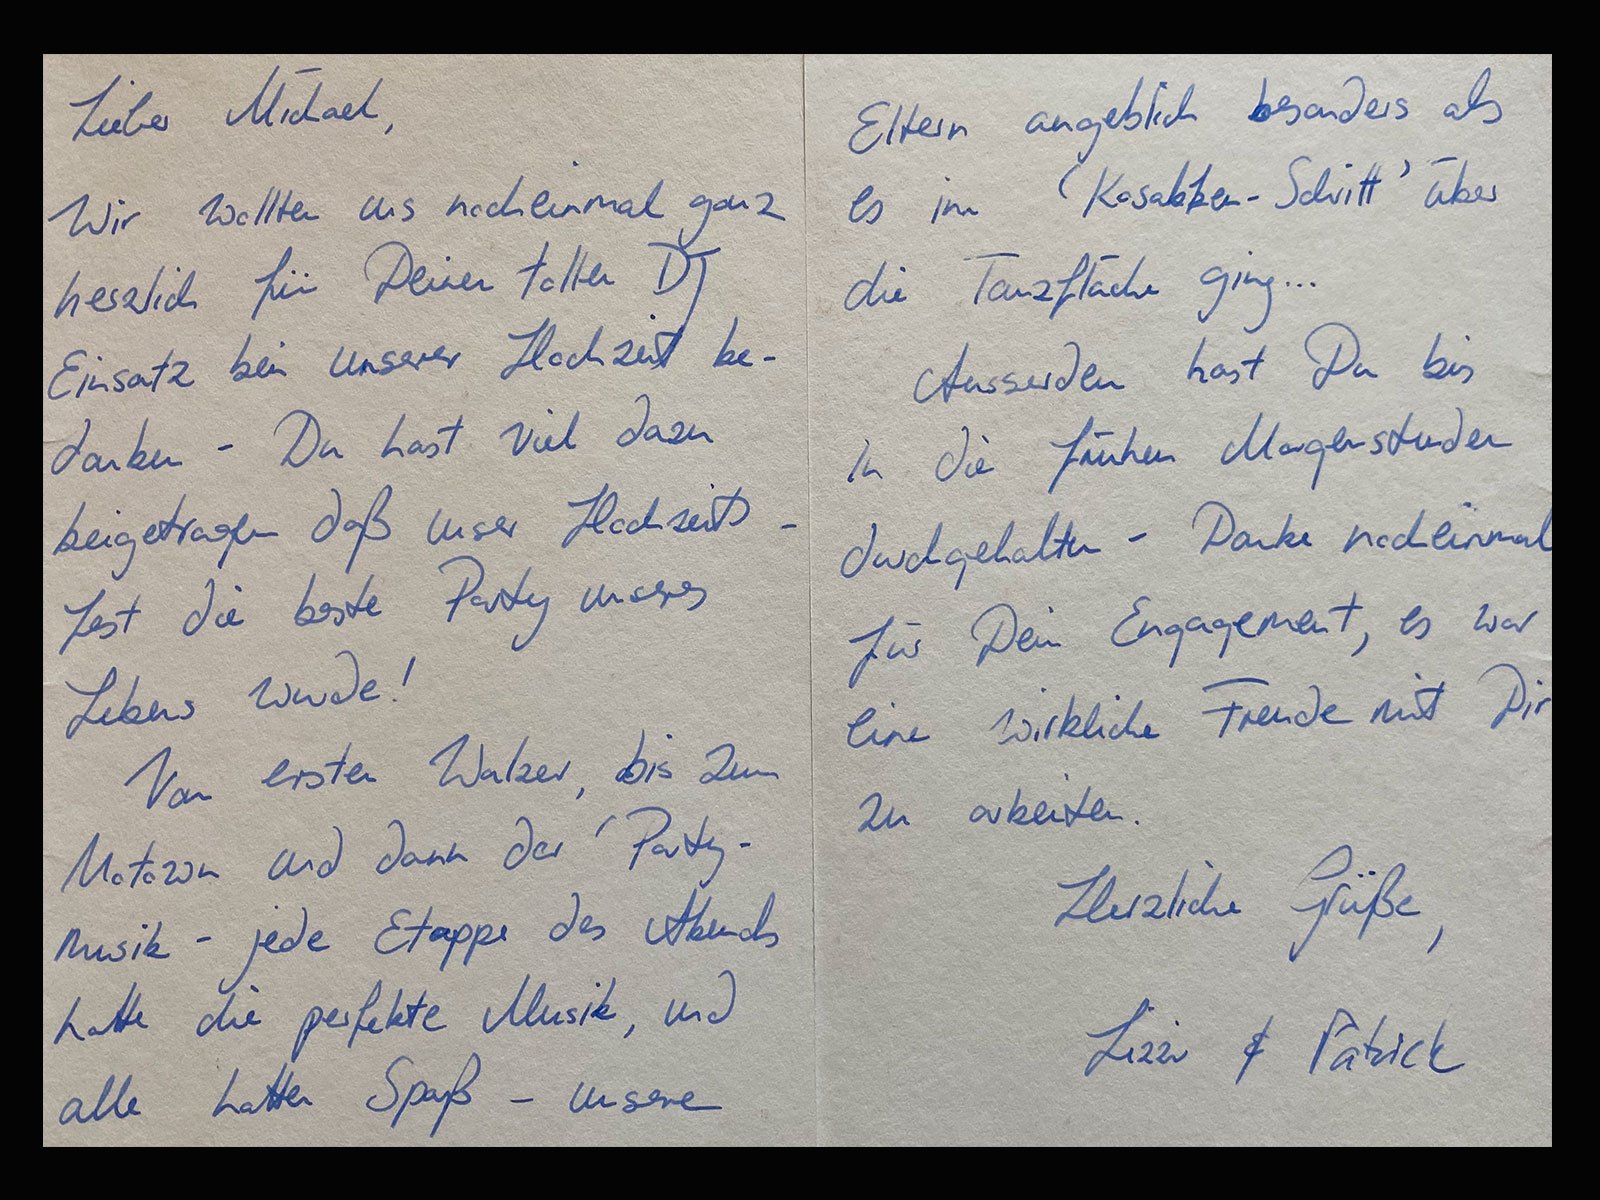 Lieber Michael,
Wir wollten uns nocheinmal ganz
herzlich für Deinen tollen DJ
Einsatz bei unserer Hochzeit be-
danken - Du hast viel dazu
beigetragen daß unser Hochzeits-
fest die beste Party unseres
Lebens wurde!
Von ersten Walzer, bis zum
Matazon und dann der 'Party-
musik - jede Etappe des Abends
hatte die perfekte Musik, und
alle hatten Spaß - unsere
Eltern angeblich besonders als
es im 'Kosakken-Schritt' über
die Tanzfläche ging...
Ausserdem hast Du bis
in die frühen Morgenstunden
durchgehalten - Danke nocheinmal
für Dein Engagement, es war
eine wirkliche Freude mit Dir
zu arbeiten.
Herzliche Grüße,
Lizzi & Patrick